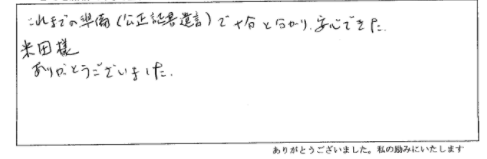 これまでの準備(公正証書遺言)で十分と分かり、安心できた.
米田様
ありがとうございました.
ありがとうございました。私の励みにいたします